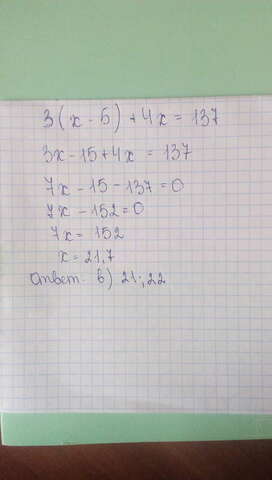 3(x - 5) + 4x = 137
3x - 15 + 4x = 137
7x - 15 - 137 = 0
7x - 152 = 0
7x = 152
x = 21,7
Ответ. в) 21;22